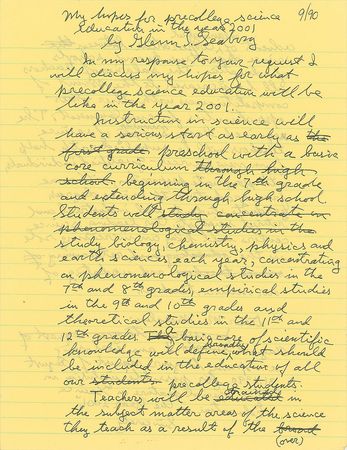 My hopes for precollege science 9/90
education in the year 2001
by Glenn T. Seaborg
In my response to your request I
will discuss my hopes for what
precollege science education will be
like in the year 2001.
Instruction in science will
have a serious start as early as the
first grade preschool with a basic
core curriculum through high
school beginning in the 7th grade
and extending through high school.
Students will study concentrate on
phenomenological studies in the
study biology, chemistry, physics and
earth sciences each year, concentrating
on phenomenological studies in the
7th and 8th grades, empirical studies
in the 9th and 10th grades and
theoretical studies in the 11th and
12th grades. The basic core of scientific
knowledge will define broadly what should
be included in the education of all
our students precollege students.
Teachers will be educated trained in
the subject matter areas of the science
they teach as a result of the broad
(over)